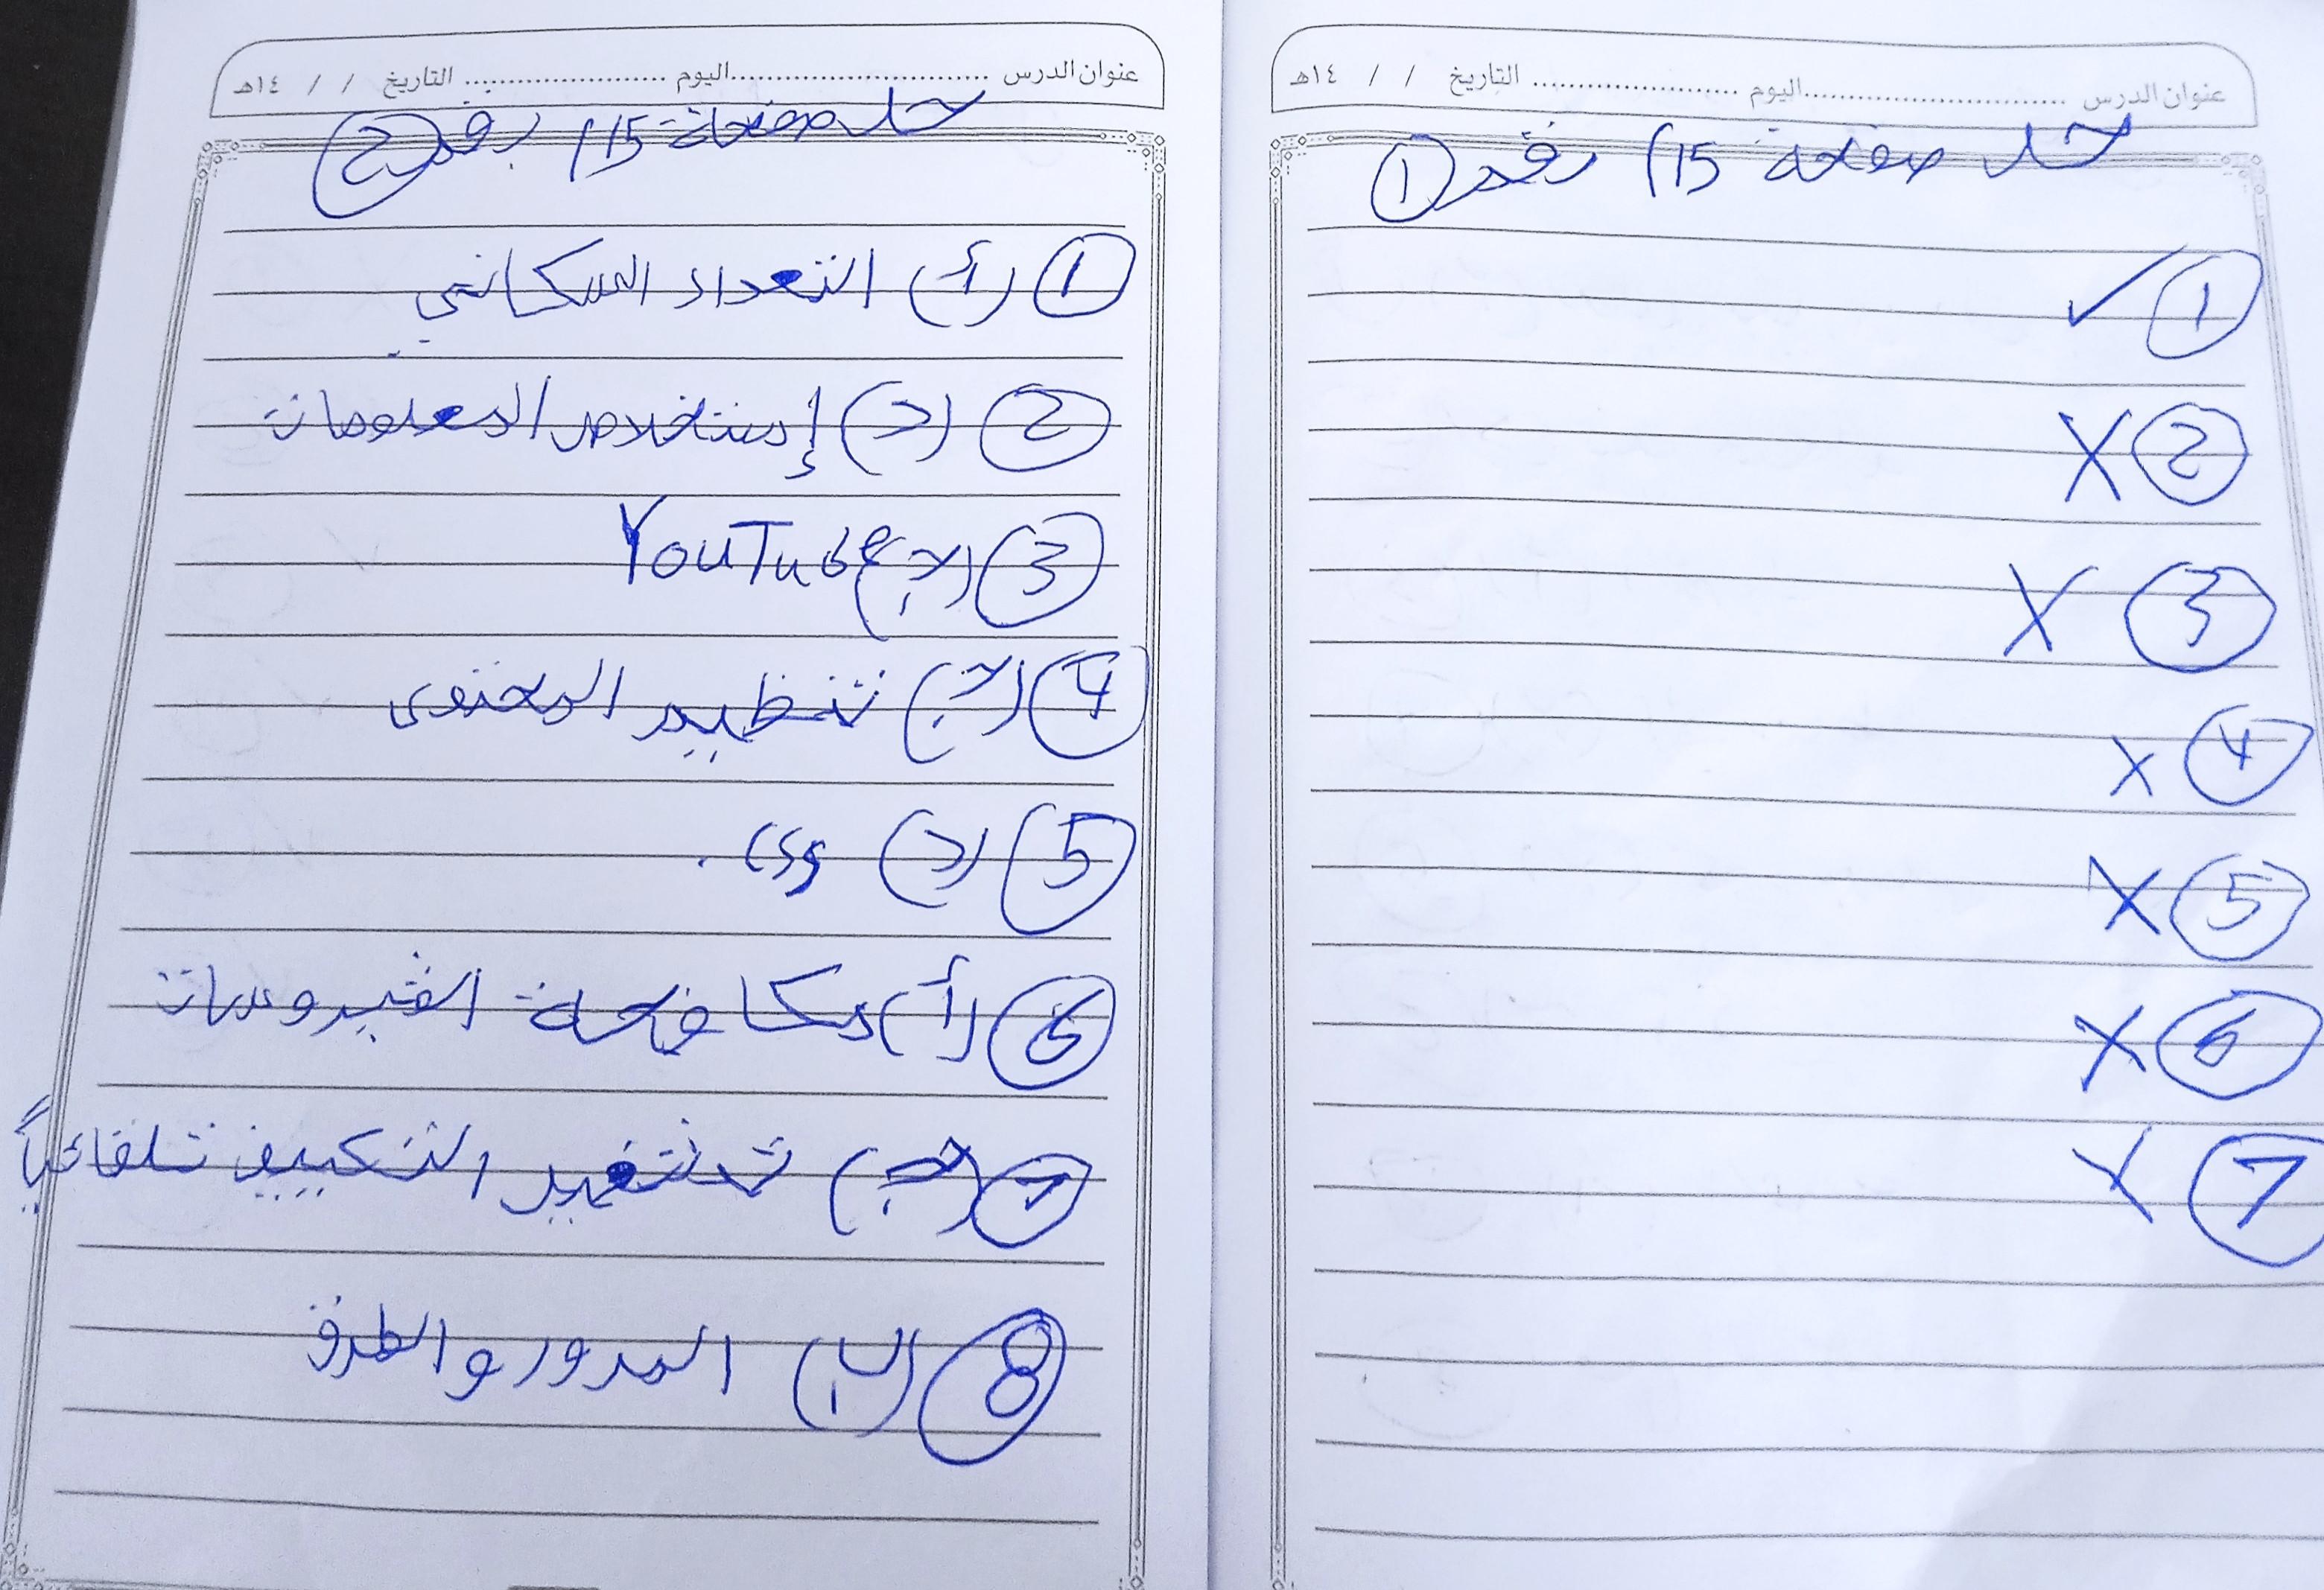 عنوان الدرس ............................ اليوم ........................ التاريخ / / ١٤هـ
حل صفحة 15 / رقم ①
① ✓
② X
③ X
④ X
⑤ X
⑥ X
⑦ X
عنوان الدرس ............................ اليوم ........................ التاريخ / / ١٤هـ
حل صفحة 15 / رقم ②
① (أ) التعداد السكاني
② (د) إستخلاص المعلومات
③ (ج) YouTube
④ (ج) تنظيم المحتوى
⑤ (د)
⑥ (أ) مكافحة الفيروسات
⑦ (ج) التكييف تلقائياً
⑧ (ب) المدور والطرق